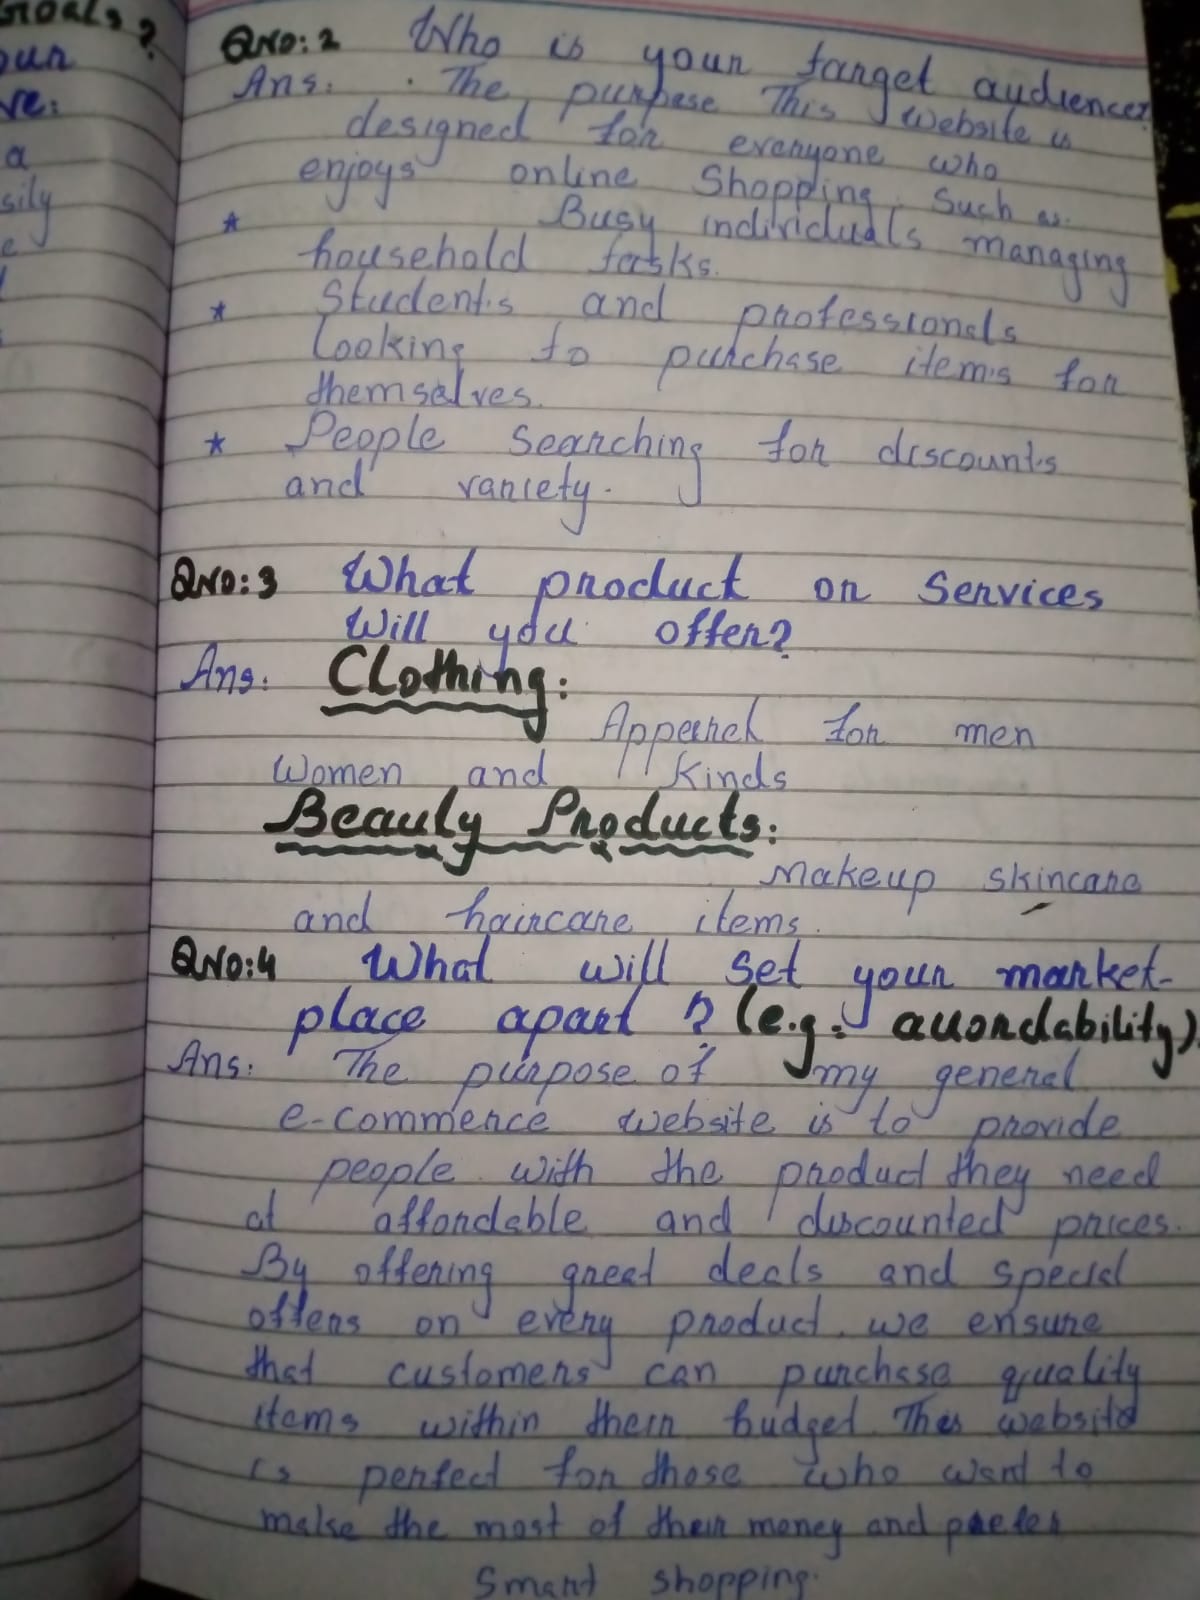 Goals?
our
ve:
a
sily
e
QNO:2 Who is your target audience?
Ans. . The purpese This website is
designed for everyone who
enjoys online Shopping. Such as.
* Busy individuals managing
household tasks.
* Students and professionals
Looking to purchase items for
themselves.
* People Searching for discounts
and variety.
QNO:3 What product or Services
Will you offer?
Ans. Clothing:
Apperrel for men
Women and Kinds
Beauty Products:
Makeup skincare
and haircare items.
QNO:4 What will set your market-
place apart ? (e.g: auordability).
Ans: The purpose of my general
e-commerce website is to provide
people with the product they need
at affordable and discounted prices.
By offering great deals and special
offers on every product. we ensure
that customers can purchase quality
items within their budget. This website
is perfect for those who want to
make the most of their money and prefer
Smart shopping.